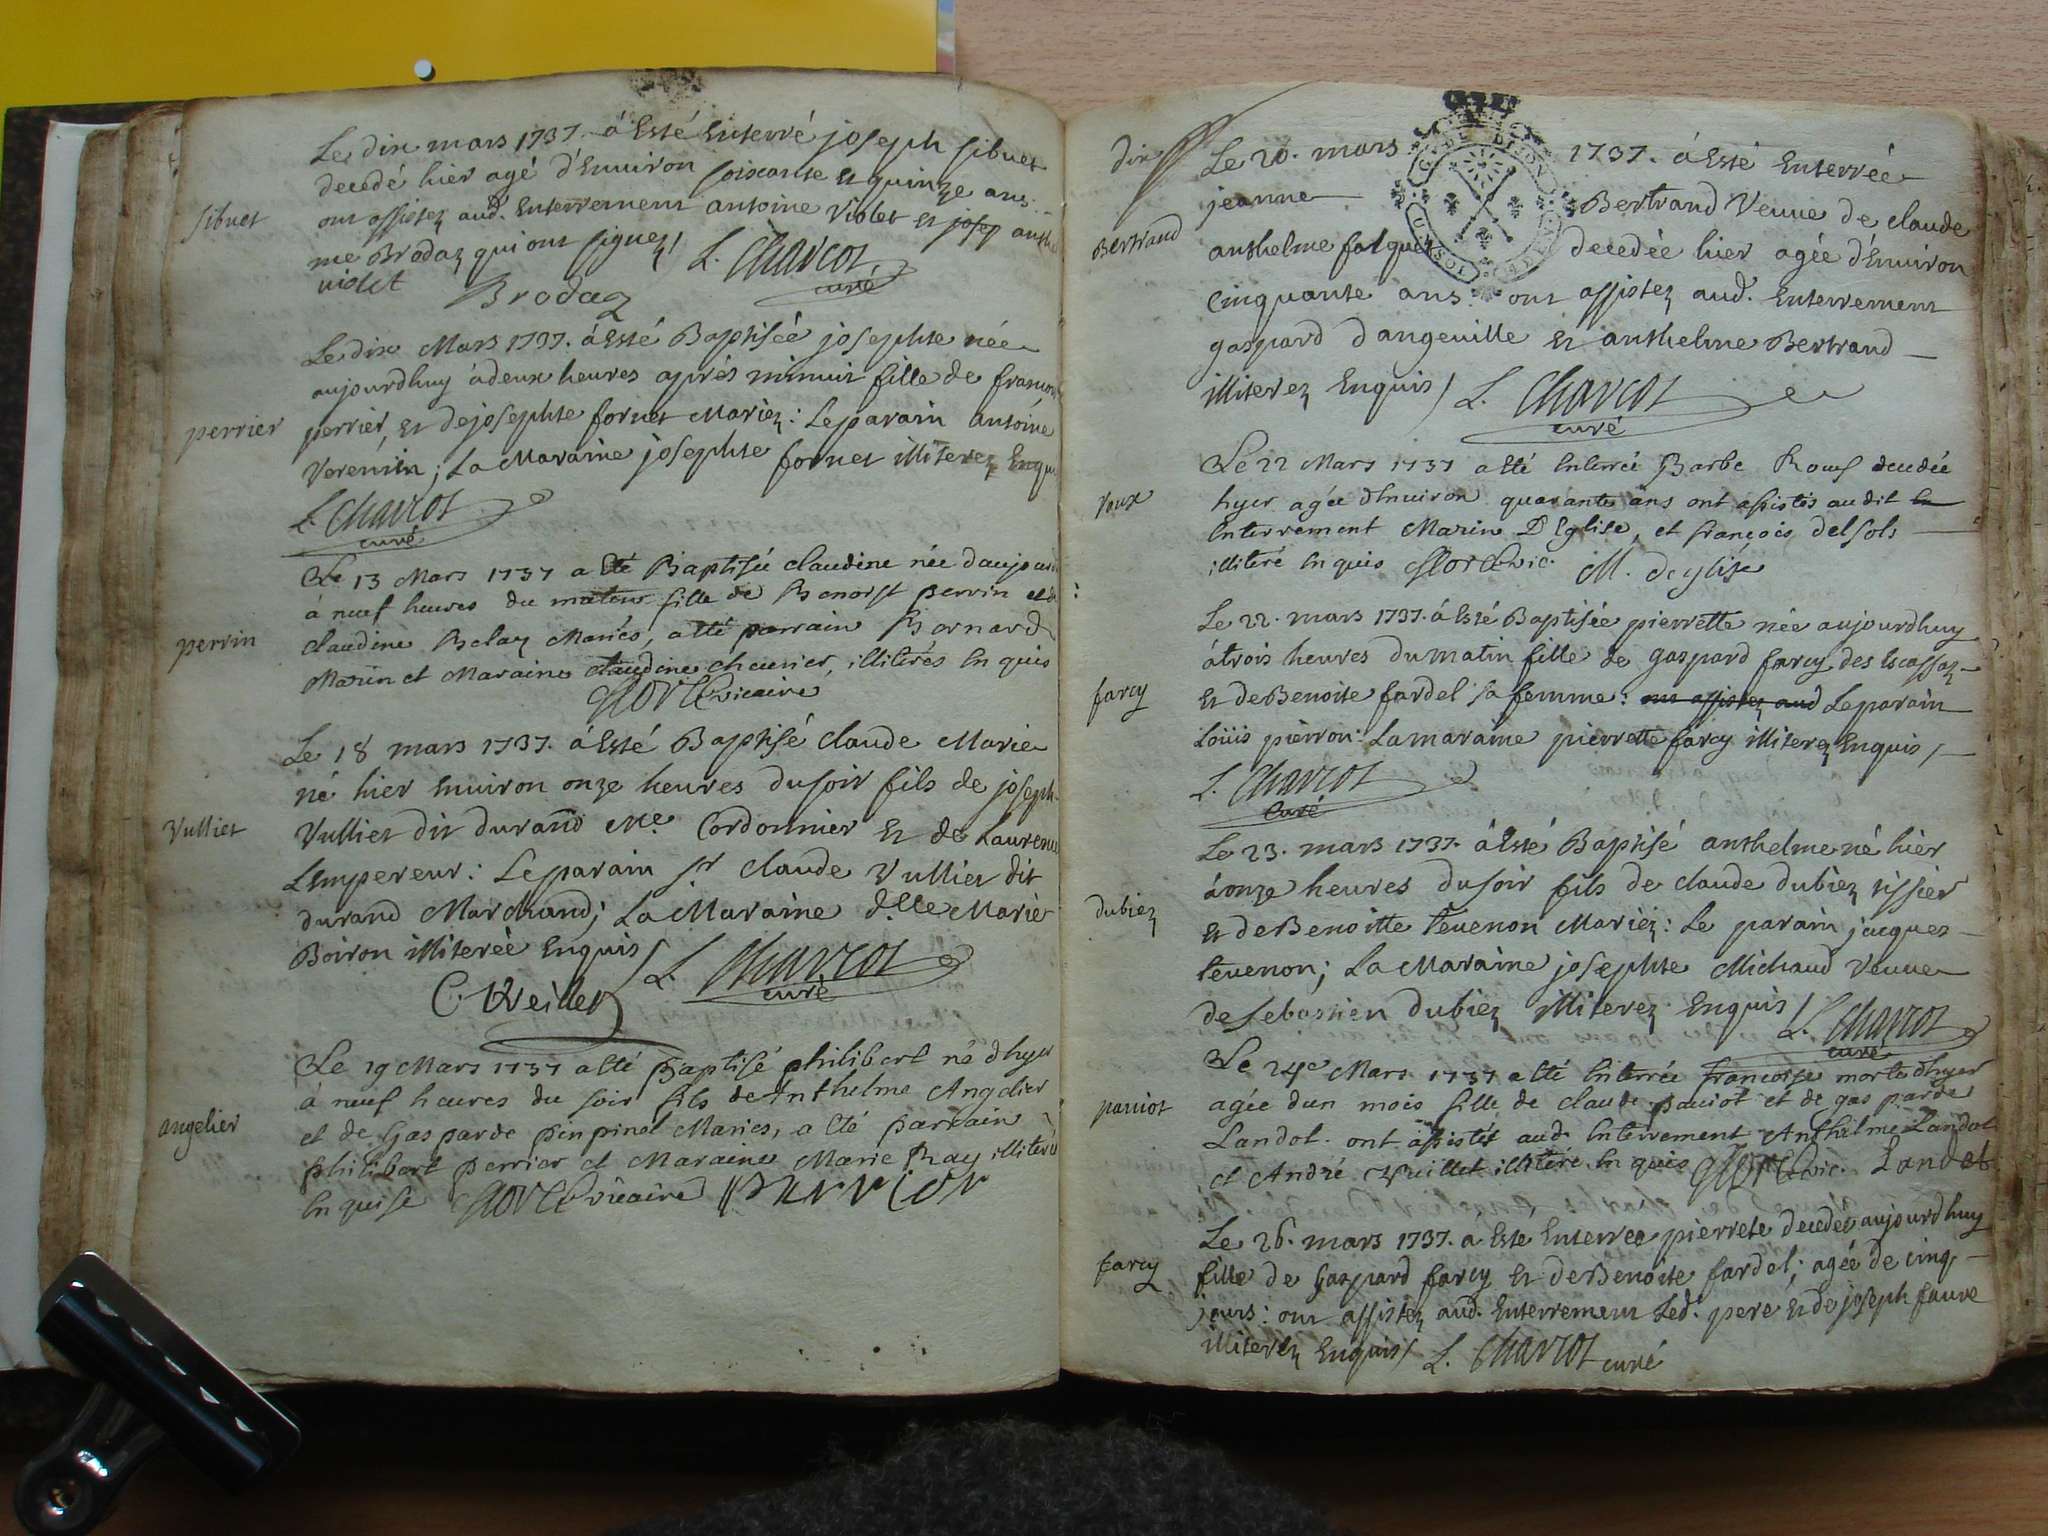 Le dix mars 1737. à Esté Enterré joseph sibuet
decedé hier agé d'Environ soixante et quinze ans.
sibuet
ont assistez aud. Enterrement antoine violet et josep anthel
me Brodaz qui ont signez / L. Charcot
curé
violet Brodaz
Le dix Mars 1737. à Esté Baptisée josephte née
aujourdhuy à deux heures après minuit fille de francois
perrier
perrier, et de josephte fornet Mariez: Le parain antoine
; La Maraine josephte fornet illiterez Enquis
L. Charcot
curé
Le 13 Mars 1737 a été Baptisée claudine née d'aujourd
à neuf heures du matin fille de Benoist perrin et de
perrin
claudine Belay Mariés, a été parrain Bernard
Marin et Maraine claudine chevrier, illiterés Enquis
vicaire
Le 18 mars 1737. à Esté Baptisé claude Marie
né hier Environ onze heures du soir fils de joseph
Vulliet
Vulliet dit durand Me. Cordonnier et de Laurence
Lempereur: Le parain sr claude Vulliet dit
durand Marchand; La Maraine d.lle Marie
Boiron illiterée Enquis / L. Charcot
curé
Le 19 Mars 1737 a été Baptisé philibert né d'hyer
à neuf heures du soir fils de Anthelme Angelier
angelier
et de Gasparde pinpinel Mariés, a été parrain
philibert perrier et Maraine Marie Ray illiteré
Enquise vicaire perrier
dix
Le 20. mars 1737. à Esté Enterrée
jeanne Bertrand Veuve de claude
Bertrand
anthelme falquet decedée hier agée d'Environ
cinquante ans. ont assistez aud. Enterrement
gaspard dangeville et anthelme Bertrand
illiterez Enquis / L. Charcot
curé
Le 22 Mars 1737 a été Enterrée Barbe Roux decedée
roux
hyer agée d'Environ quarante ans ont assistés audit En
Enterrement Marin D'Eglise, et françois delsols
illiteré Enquis vic. M. deglise
Le 22. mars 1737. à Esté Baptisée pierrette née aujourdhuy
à trois heures du matin fille de gaspard farcy des Escassaz
farcy
et de Benoite fardel sa femme: ont assistez aud Le parain
Loüis pierron: La maraine pierrette farcy illiterez Enquis /
L. Charcot
curé
Le 23. mars 1737. à Esté Baptisé anthelme né hier
à onze heures du soir fils de claude dubiez tissier
dubiez
et de Benoitte tevenon Mariéz: Le parain jacques
tevenon; La Maraine josephte Michaud veuve
de sebastien dubiez illiterez Enquis / L. Charcot
curé
Le 24e Mars 1737 a été Enterrée francoise morte d'hyer
paviot
agée d'un mois fille de claude paviot et de gasparde
Landot. ont assistés aud. Enterrement Anthelme Landot
et André Vuillet illiteré Enquis vic. Landot
Le 26. mars 1737. à Esté Enterrée pierrete decedée aujourdhuy
farcy
fille de gaspard farcy et de Benoite fardel; agée de cinq
jours: ont assistez aud. Enterrement Led. pere et de joseph favre
illiterez Enquis / L. Charcot curé